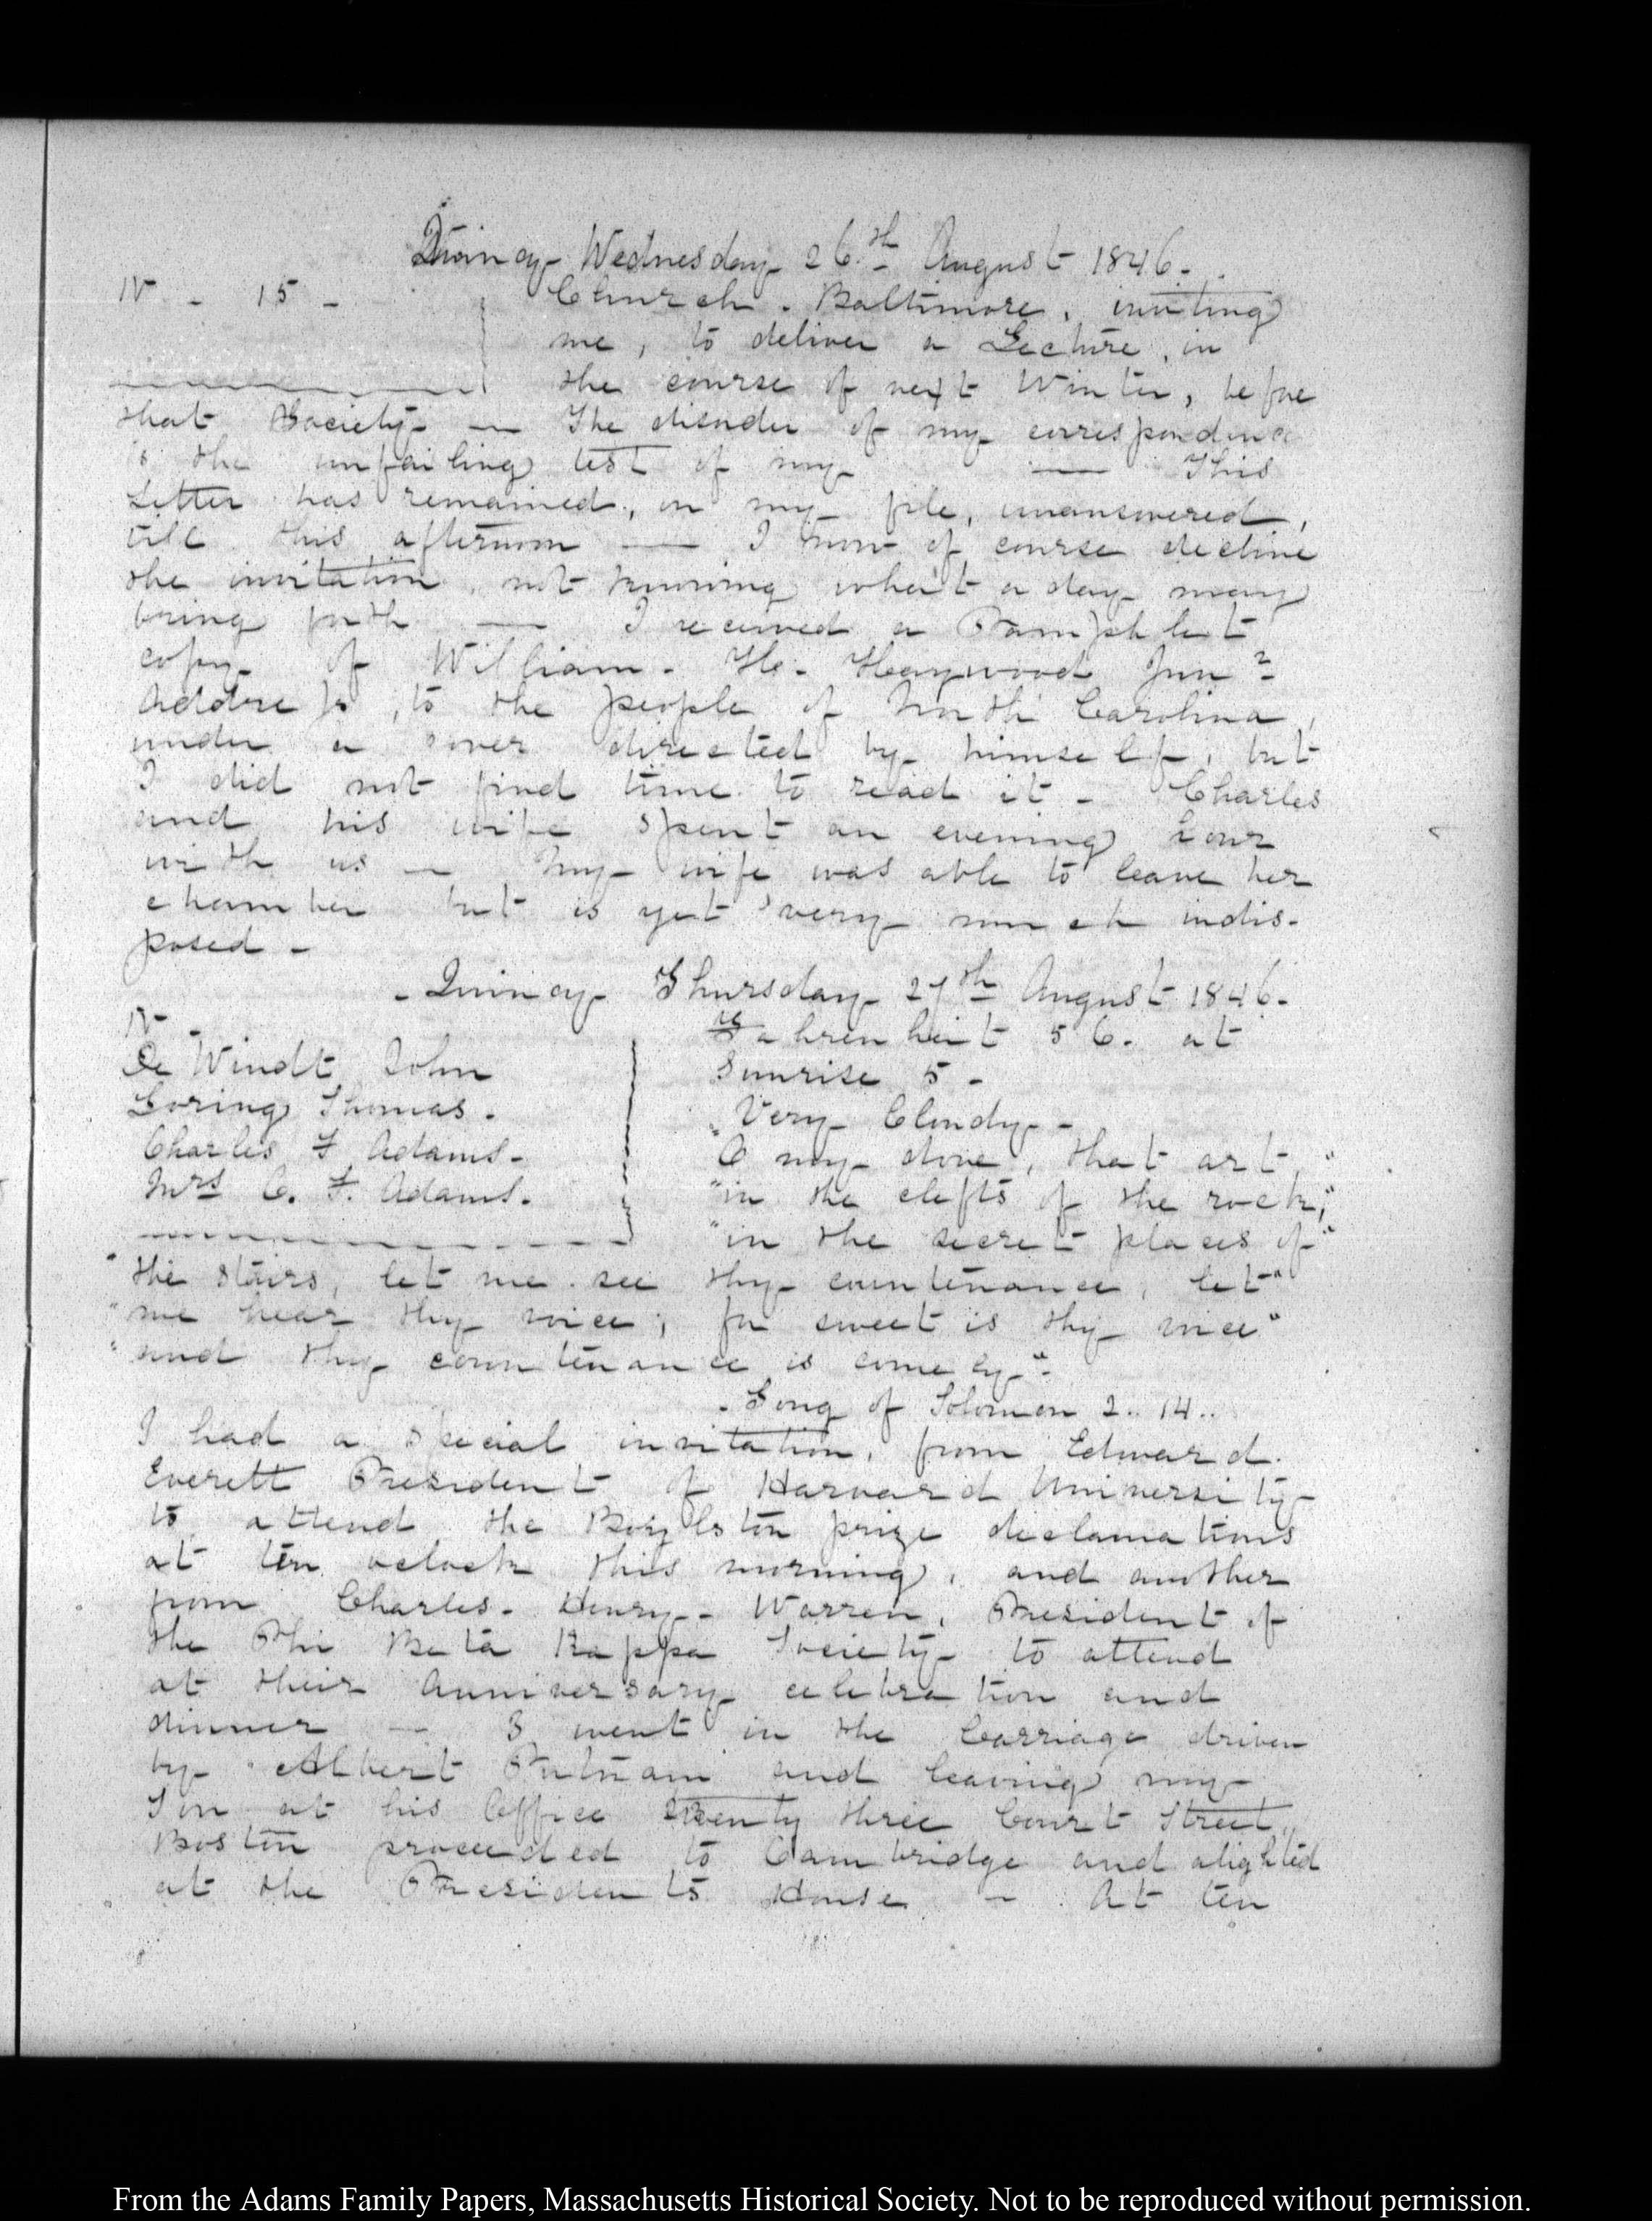 Quincy Wednesday 26.th August 1846.
IV - 15 -
Church. Baltimore, inviting
me, to deliver a Lecture, in
the course of next Winter, before
that Society — The disorder of my correspondence
is the unfailing test of my — This
Letter has remained, on my file, unanswered,
till this afternoon — I now of course decline
the invitation, not knowing what a day may
bring forth — I received a Pamphlet
copy of William. H. Haywood Junr
Address, to the people of North Carolina,
under a cover directed by himself, but
I did not find time to read it - Charles
and his wife spent an evening hour
with us — My wife was able to leave her
chamber but is yet very much indis-
posed -
- Quincy Thursday 27th August 1846.
IV -
De Windt John
Loring Thomas.
Charles F Adams.
Mrs C. F. Adams.
Fahrenheit 56. at
Sunrise 5 -
Very Cloudy -
O my dove, that art, "
"in the clefts of the rock,"
"in the secret places of"
"the stairs, let me see thy countenance, let"
"me hear thy voice; for sweet is thy voice"
"and thy countenance is comely".
- Song of Solomon 2..14..
I had a special invitation, from Edward.
Everett President of Harvard University
to attend the Boylston prize declamations
at ten oclock this morning, and another
from Charles. Henry. Warren, President of
the Phi Beta Kappa Society to attend
at their Anniversary celebration and
dinner — I went in the Carriage driven
by Albert Putnam and leaving my
Son at his Office twenty three Court Street,
Boston proceeded to Cambridge and alighted
at the Presidents House — At ten
From the Adams Family Papers, Massachusetts Historical Society. Not to be reproduced without permission.